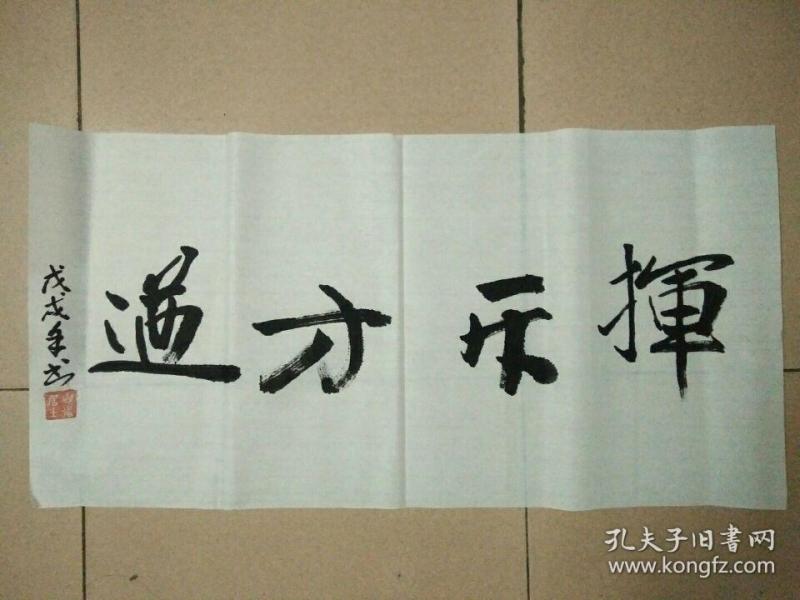 揮斥方遒
戊戌年书
孔夫子旧書网
www.kongfz.com